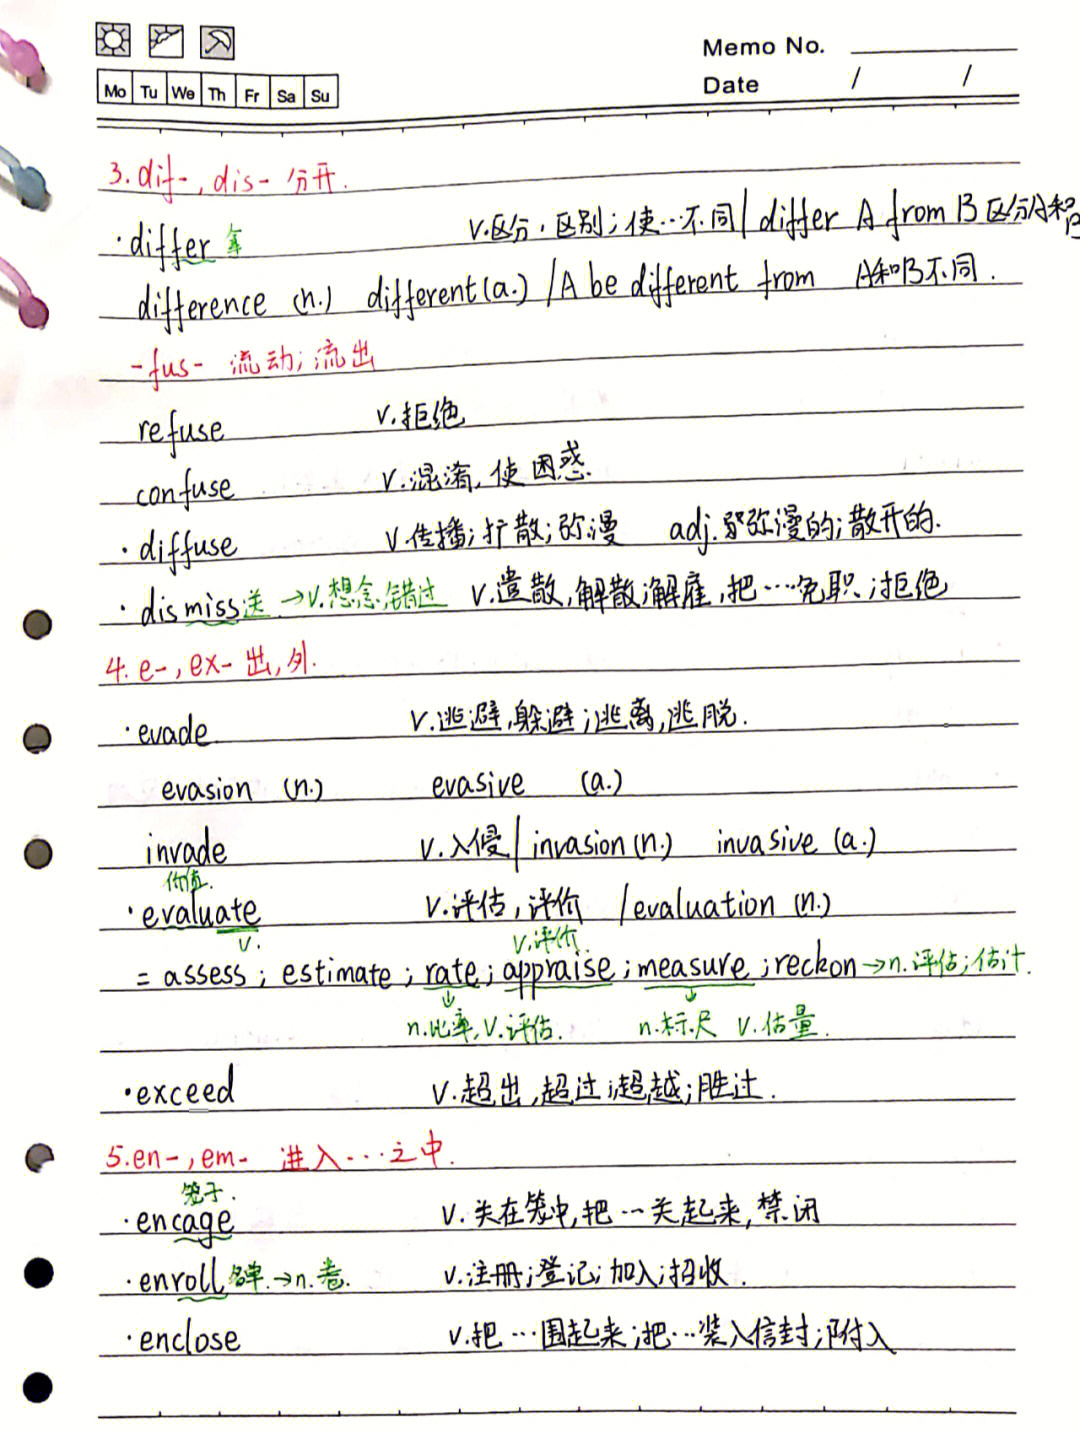 Memo No.
Mo Tu We Th Fr Sa Su
Date / /
3. dif-, dis- 分开.
·differ 拿 v.区分,区别;使…不同/differ A from B 区分A和B
difference (n.) different(a.) /A be different from A和B不同.
-fus- 流动;流出
refuse v.拒绝
confuse v.混淆,使困惑.
·diffuse v.传播;扩散;弥漫 adj.弥漫的;散开的.
·dismiss送 →v.想念,错过 v.遣散,解散;解雇,把…免职;拒绝
4. e-,ex- 出,外.
·evade v.逃避,躲避;逃离,逃脱.
evasion (n.) evasive (a.)
invade v.入侵/invasion(n.) invasive (a.)
价值.
·evaluate v.评估,评价 /evaluation (n.)
v. v.评价.
= assess; estimate; rate; appraise; measure; reckon→n.评估;估计.
↓ ↓
n.比率,v.评估. n.标尺 v.估量.
·exceed v.超出,超过;超越;胜过.
5.en-,em- 进入…之中.
笼子.
·encage v.关在笼中,把…关起来,禁闭
·enroll名单.→n.卷. v.注册;登记;加入;招收.
·enclose v.把…围起来;把…装入信封;附入